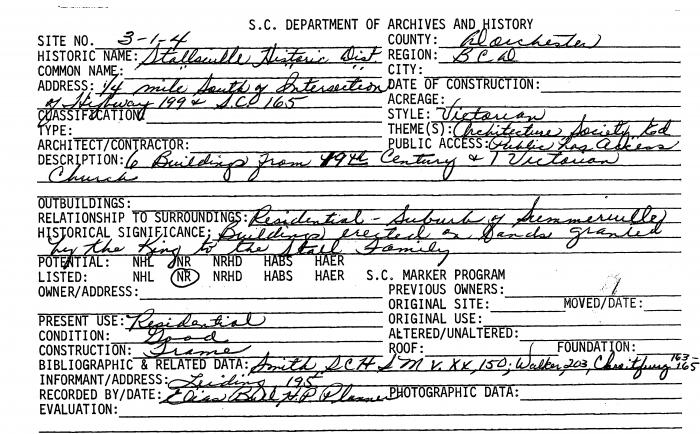 S.C. DEPARTMENT OF ARCHIVES AND HISTORY
SITE NO. 3-1-4 COUNTY: Dorchester
HISTORIC NAME: Stallsville Historic Dist REGION: BCD
COMMON NAME: " " " CITY:
ADDRESS: 1/4 mile South of Intersection DATE OF CONSTRUCTION:
of Highway 199 & S.C. 165 ACREAGE:
CLASSIFICATION: STYLE: Victorian
TYPE: THEME(S): Architecture, Society,
ARCHITECT/CONTRACTOR: PUBLIC ACCESS: Public has Access
DESCRIPTION: 6 Buildings from 19th Century & 1 Victorian
Church
OUTBUILDINGS:
RELATIONSHIP TO SURROUNDINGS: Residential - Suburb of Summerville
HISTORICAL SIGNIFICANCE: Buildings erected on lands granted
by the King to the Stall Family
POTENTIAL: NHL NR NRHD HABS HAER
LISTED: NHL NR NRHD HABS HAER S.C. MARKER PROGRAM
OWNER/ADDRESS: PREVIOUS OWNERS:
ORIGINAL SITE: MOVED/DATE:
PRESENT USE: Residential ORIGINAL USE:
CONDITION: Good ALTERED/UNALTERED:
CONSTRUCTION: Frame ROOF: FOUNDATION:
BIBLIOGRAPHIC & RELATED DATA: Smith, SCH & M V. XX, 150; Walker, 203, 163-165
INFORMANT/ADDRESS: Leiding 195
RECORDED BY/DATE: Elias Bull H.P. Planner PHOTOGRAPHIC DATA:
EVALUATION: